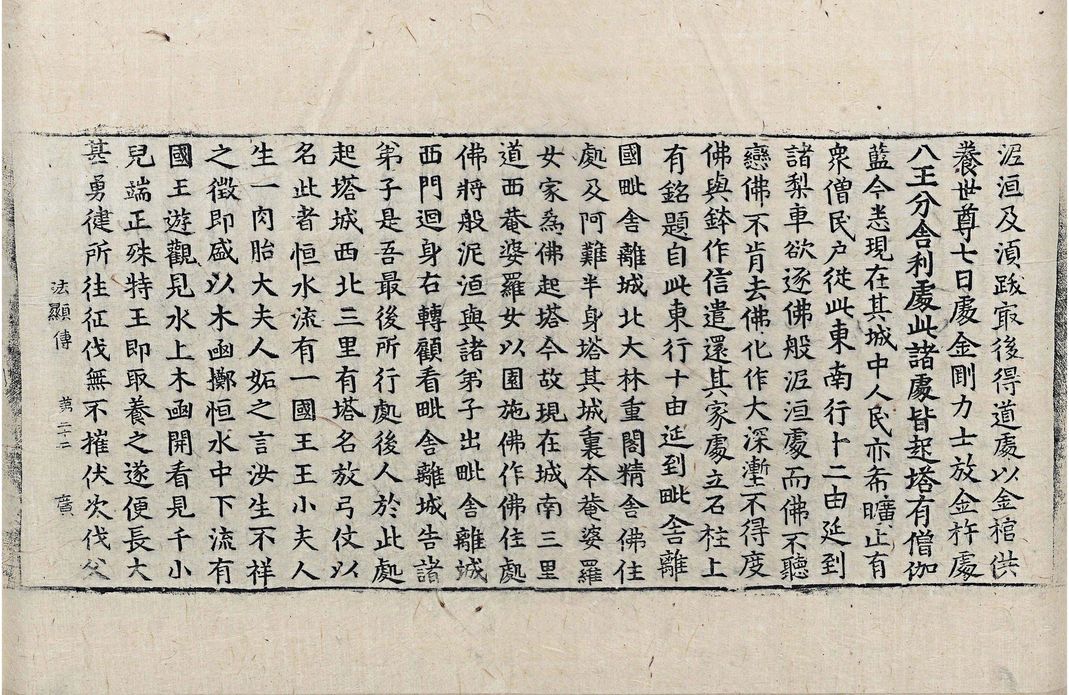 泥洹及湏跋㝡後得道處以金棺供
養世尊七日處金剛力士放金杵處
八王分舎利處此諸處皆起塔有僧伽
藍今悉現在其城中人民亦希曠止有
衆僧民户從此東南行十二由延到
諸梨車欲逐佛般泥洹處而佛不聽
戀佛不肯去佛化作大深壍不得度
佛與鉢作信遣還其家處立石柱上
有銘題自此東行十由延到毗舎離
國毗舎離城北大林重閣精舎佛住
處及阿難半身塔其城裏本菴婆羅
女家為佛起塔今故現在城南三里
道西菴婆羅女以園施佛作佛住處
佛將般泥洹與諸弟子出毗舎離城
西門迴身右轉顧看毗舎離城告諸
弟子是吾最後所行處後人於此處
起塔城西北三里有塔名放弓仗以
名此者恒水流有一國王王小夫人
生一肉胎大夫人妬之言汝生不祥
之徵即盛以木函擲恒水中下流有
國王遊觀見水上木函開看見千小
兒端正殊特王即取養之遂便長大
甚勇健所往征伐無不摧伏次伐父
法顯傳 第二十二 廣